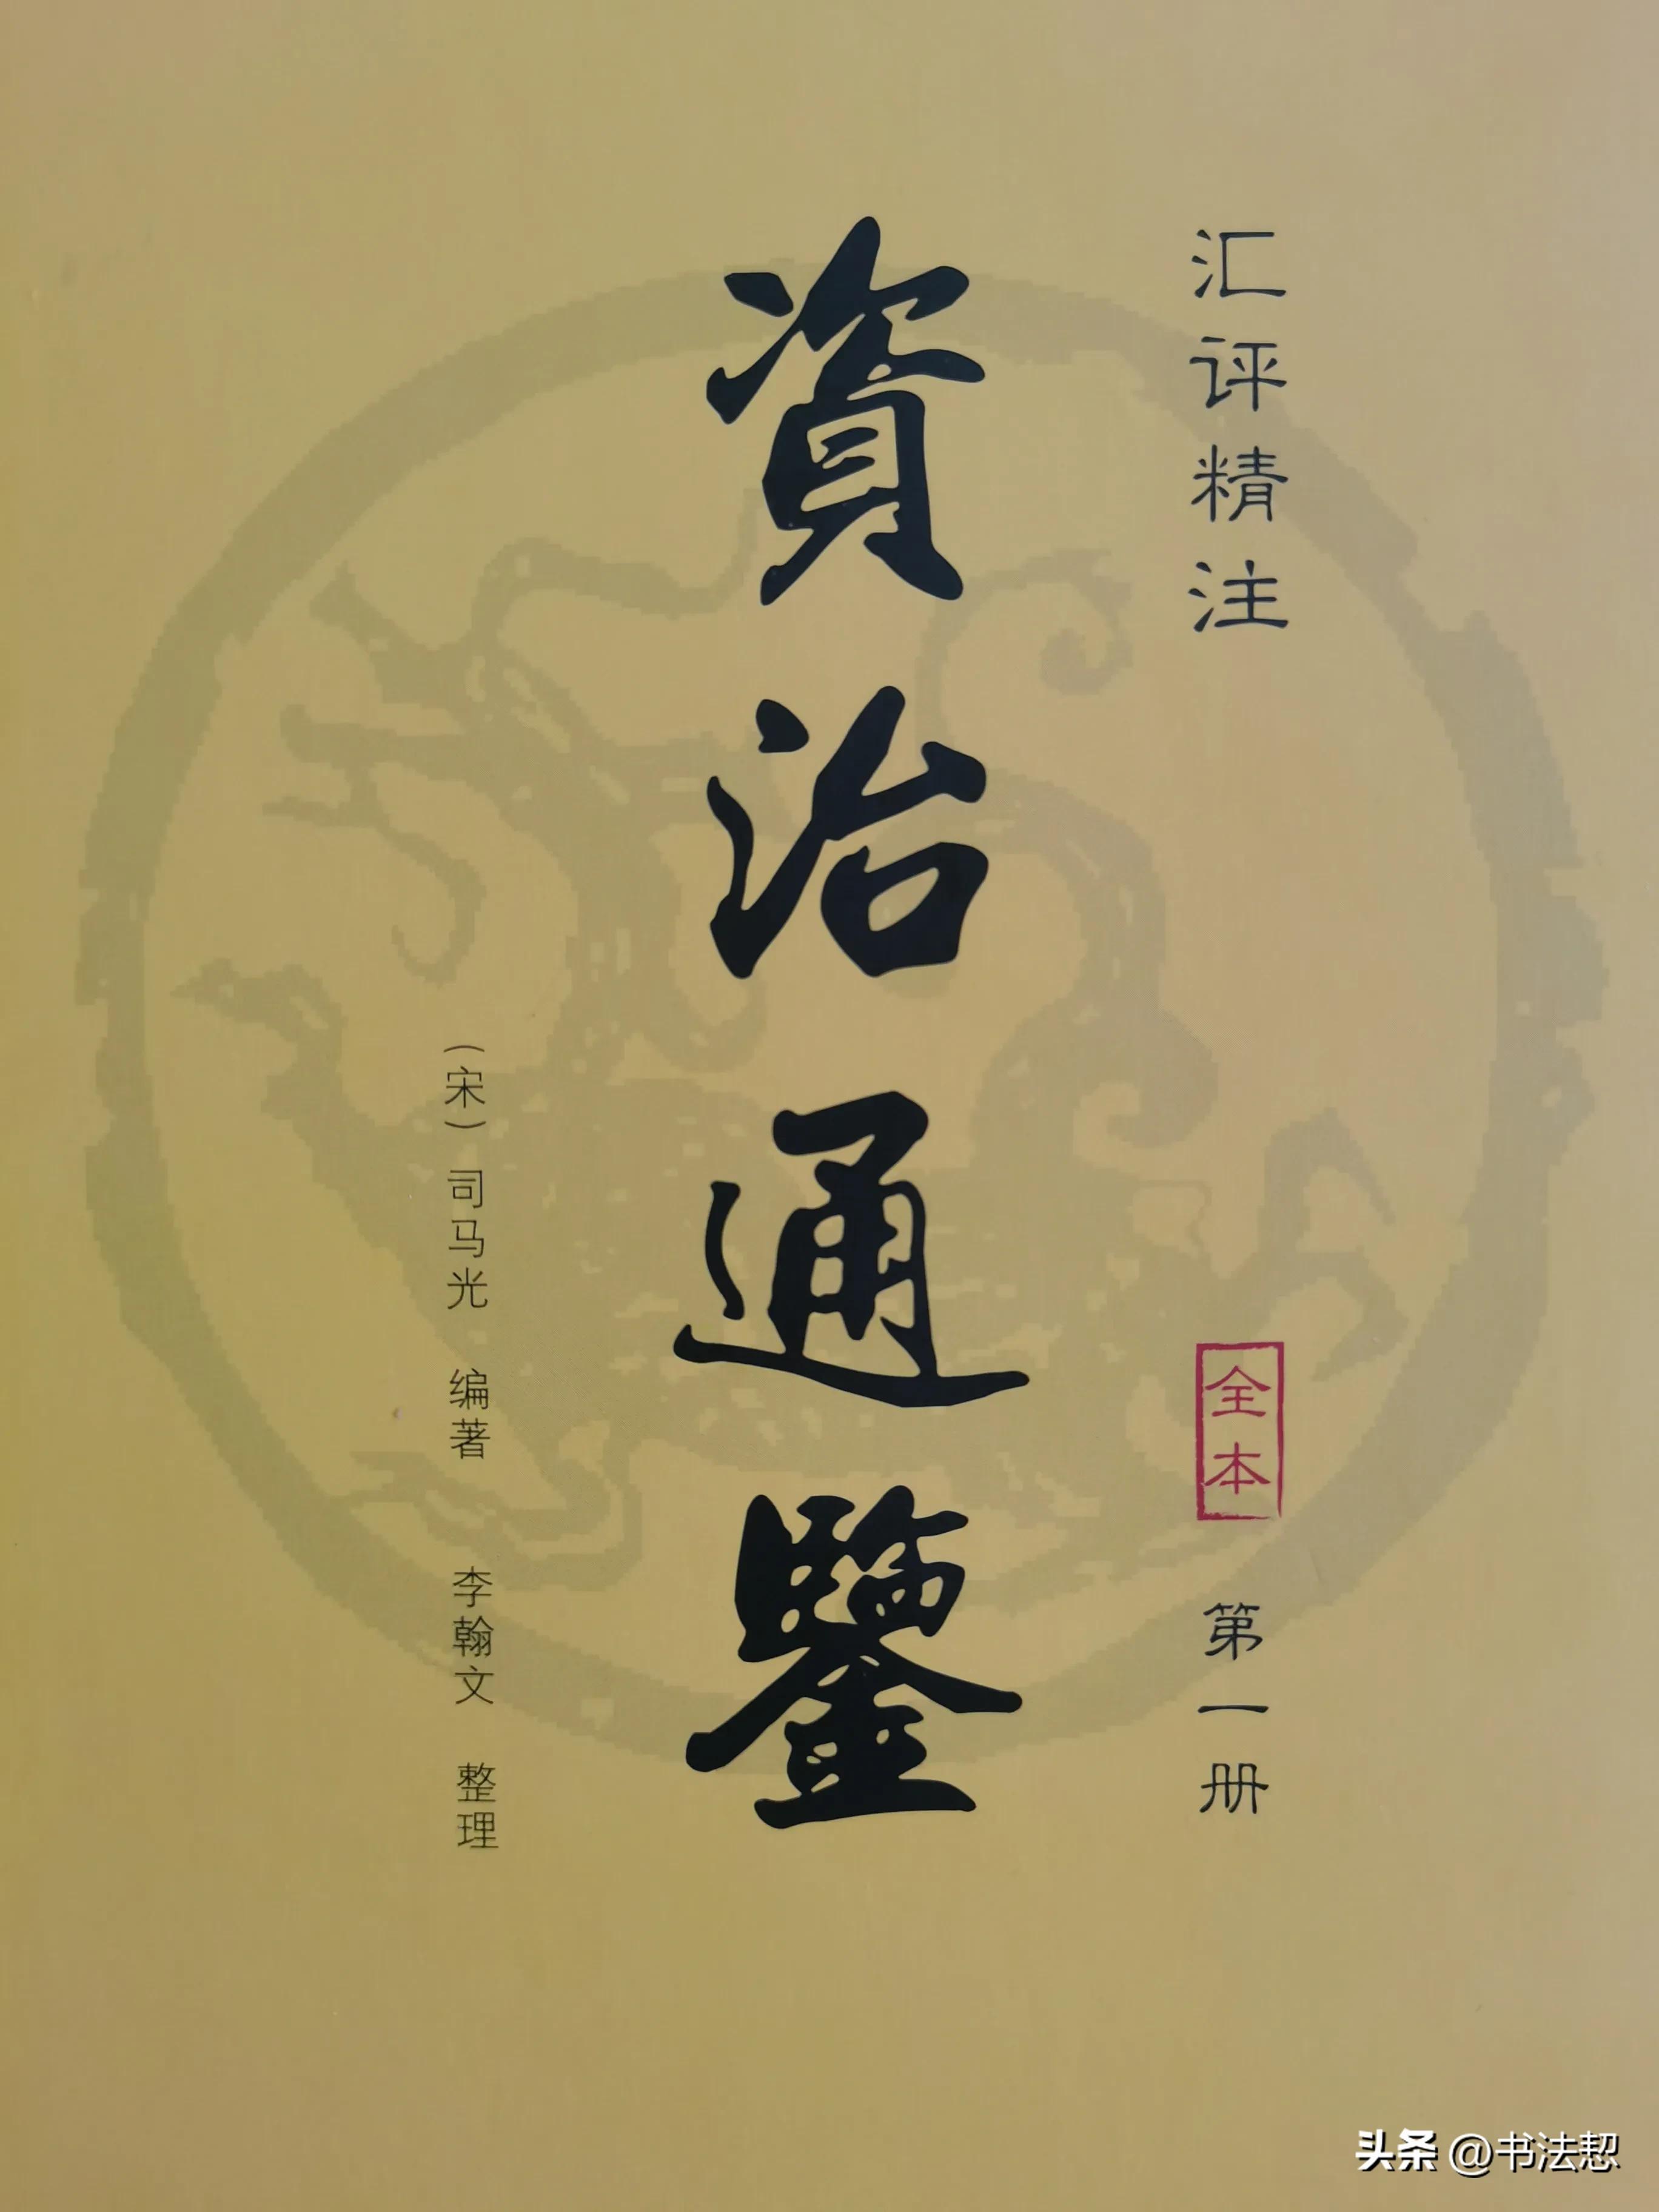 汇评精注
全本
第一册
資治通鑒
（宋）司马光 编著 李翰文 整理
头条 @书法恝